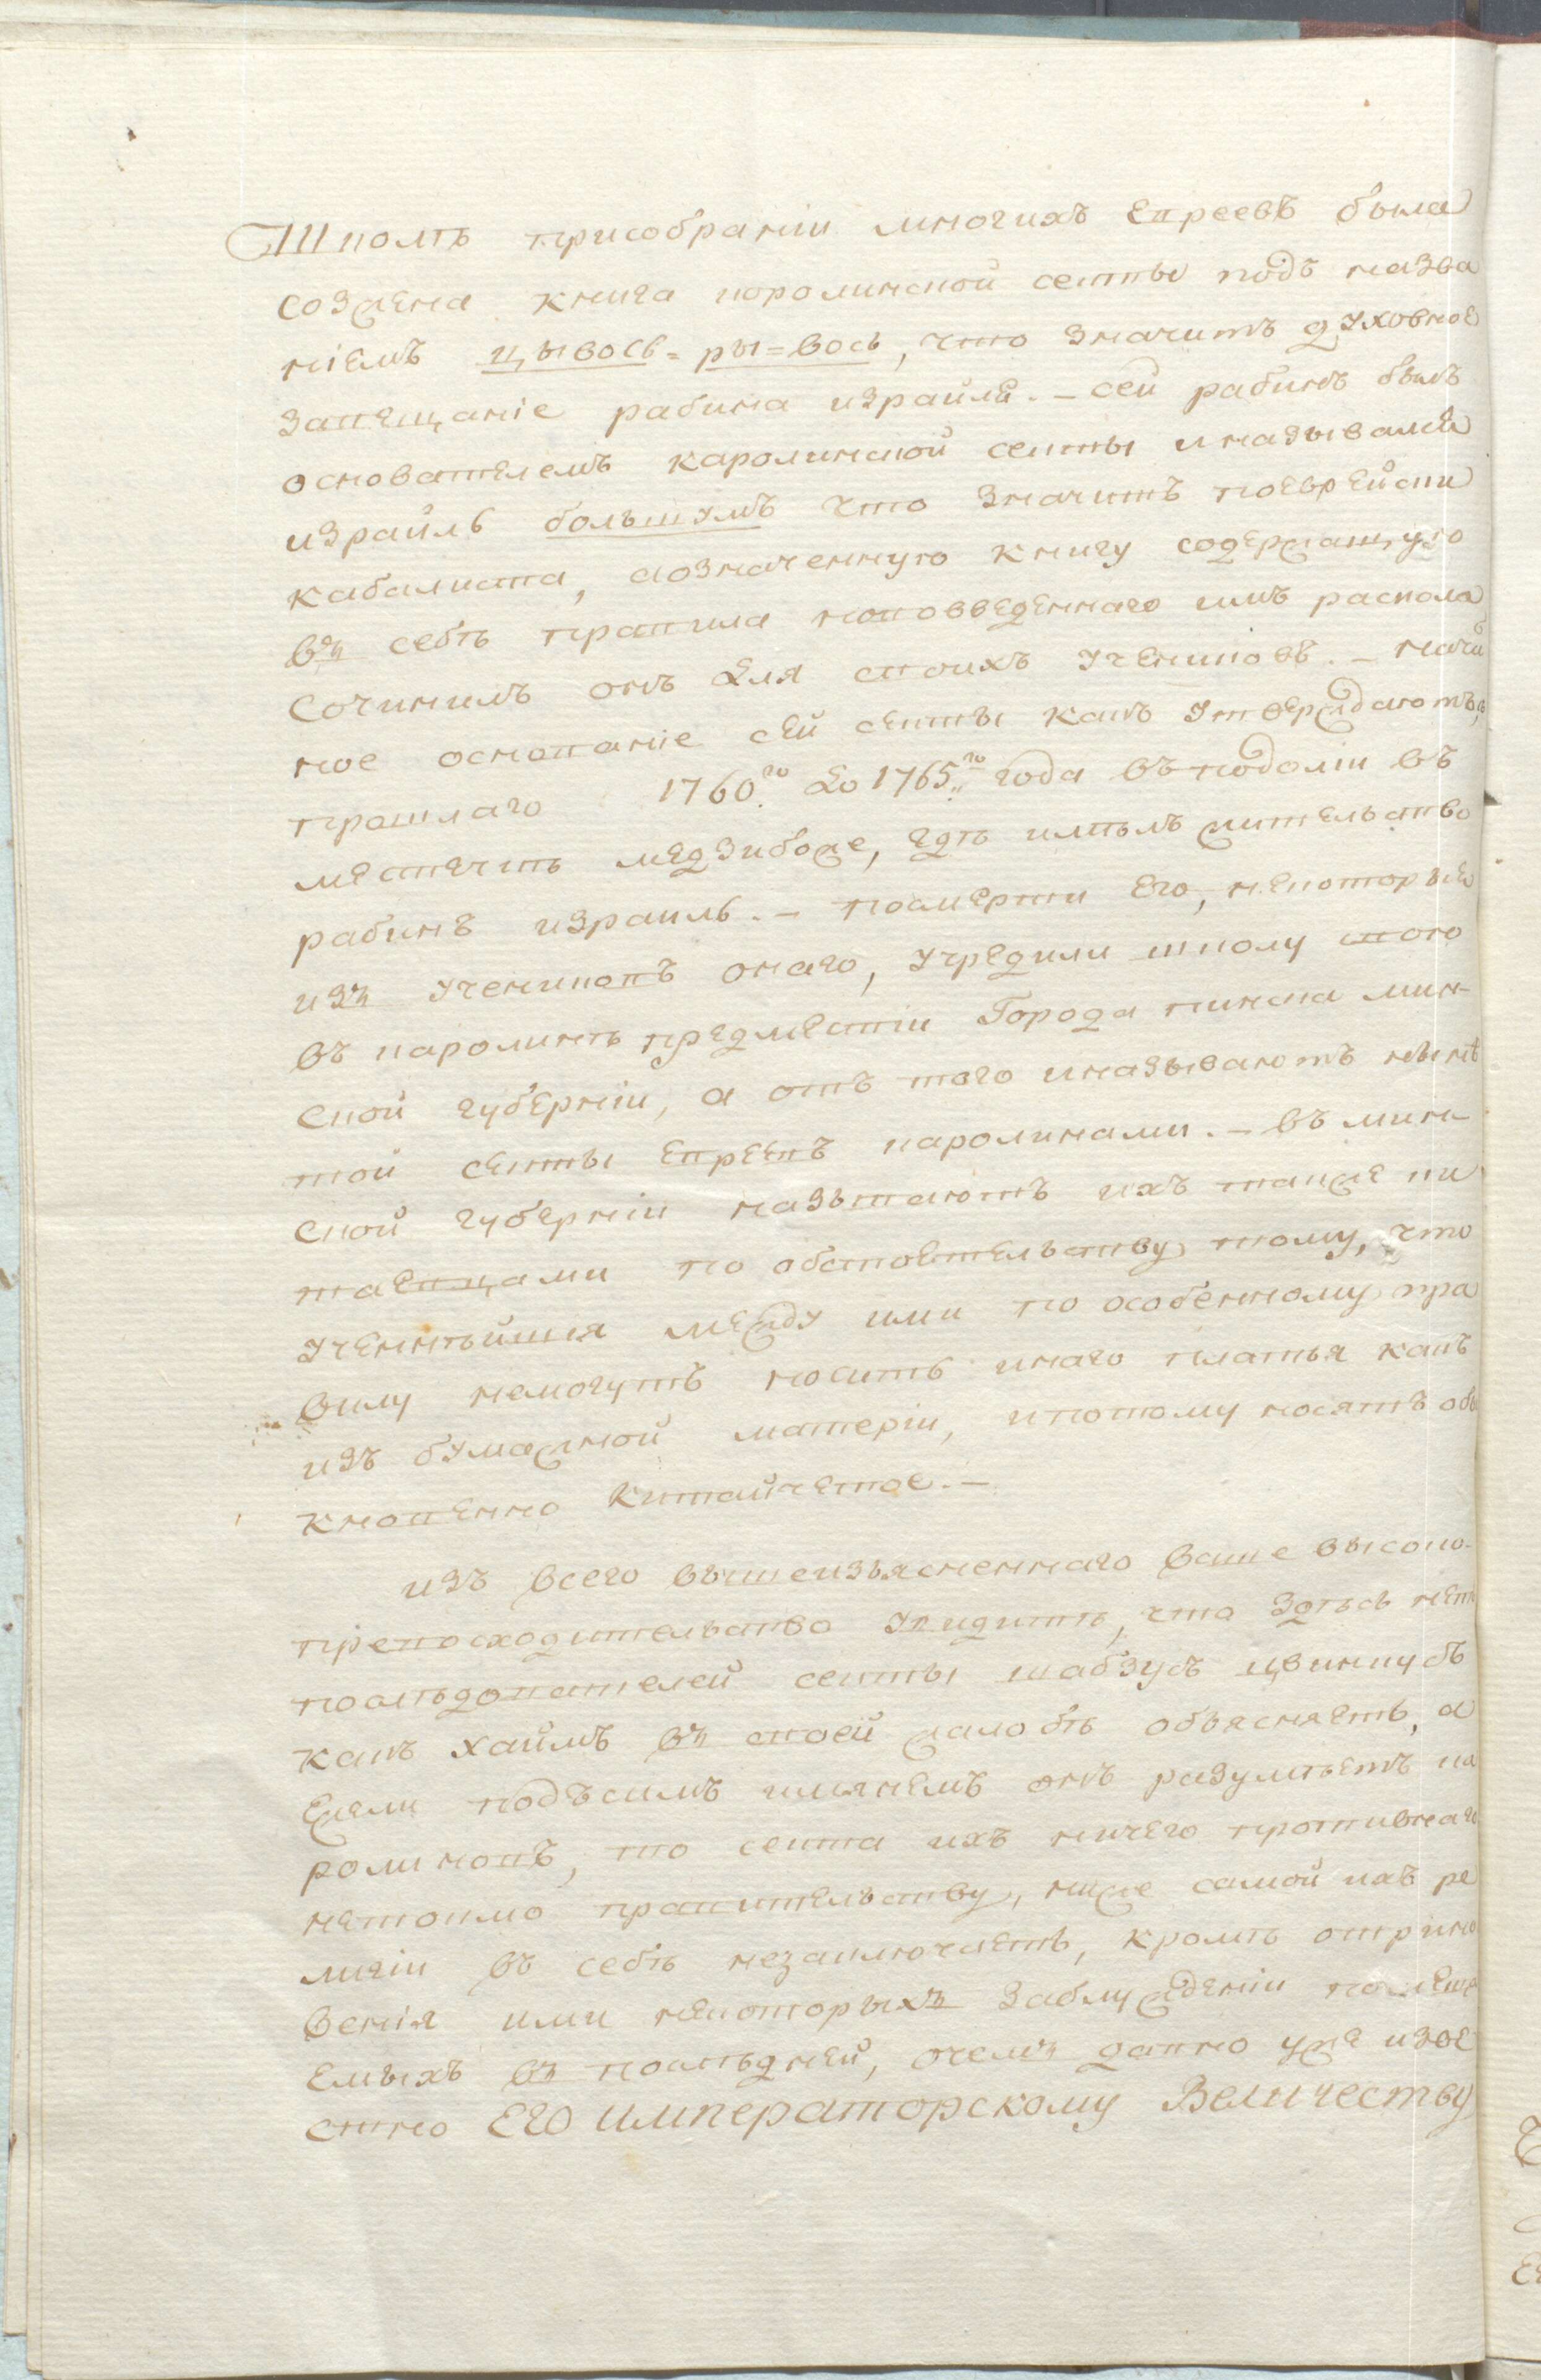 Шполѣ присобраніи многихъ Евреевъ была
созжена книга каролинской секты подъ назва
ніемъ цывось=ры=вось, что значитъ духовное
завещаніе рабина израиля. – сей рабинъ былъ
основателемъ каролинской секты иназывался
израйль больтумъ что значитъ поеврейски
кабалиста, аозначенную книгу содержащую
въ себѣ правила нововведеннаго имъ раскола
сочинилъ онъ для своихъ учениковъ. – начал
ное основаніе сей секты какъ утверждаютъ,
прошлаго 1760го до 1765го года въ подоліи въ
местечкѣ медзибоже, гдѣ имѣлъ жительство
рабинъ израиль. – посмерти его, некоторые
изъ учениковъ онаго, учредили школу свою
въ каролинѣ предместіи Города пинска мин-
ской губерніи, а отъ того иназываютъ нынѣ
той секты евреевъ каролинами. – въ мин-
ской губерніи называютъ ихъ также ки
таевцами по обстоятельству тому, что
ученнѣйшія между ими по особенному пра
вилу немогутъ носить инаго платья какъ
изъ бумажной матеріи, ипотому носятъ обы
кновенно китайчетое. –
изъ всего вышеизъясненнаго ваше высоко-
превосходительство увидитъ, что здѣсь нетъ
послѣдователей секты шабзусъ цвинкусъ
какъ хаимъ въ своей жалобѣ объясняетъ, а
ежели подъсимъ имянемъ онъ разумѣетъ ка
ролиновъ, то секта ихъ ничего противнаго
нетокмо правительству, ниже самой ихъ ре
лигіи въ себѣ незаключаетъ, кромѣ отрино
венія ими некоторыхъ заблужденіи помеща
емыхъ въ послѣдней, очемъ давно уже изве
стно Его императорскому Величеству